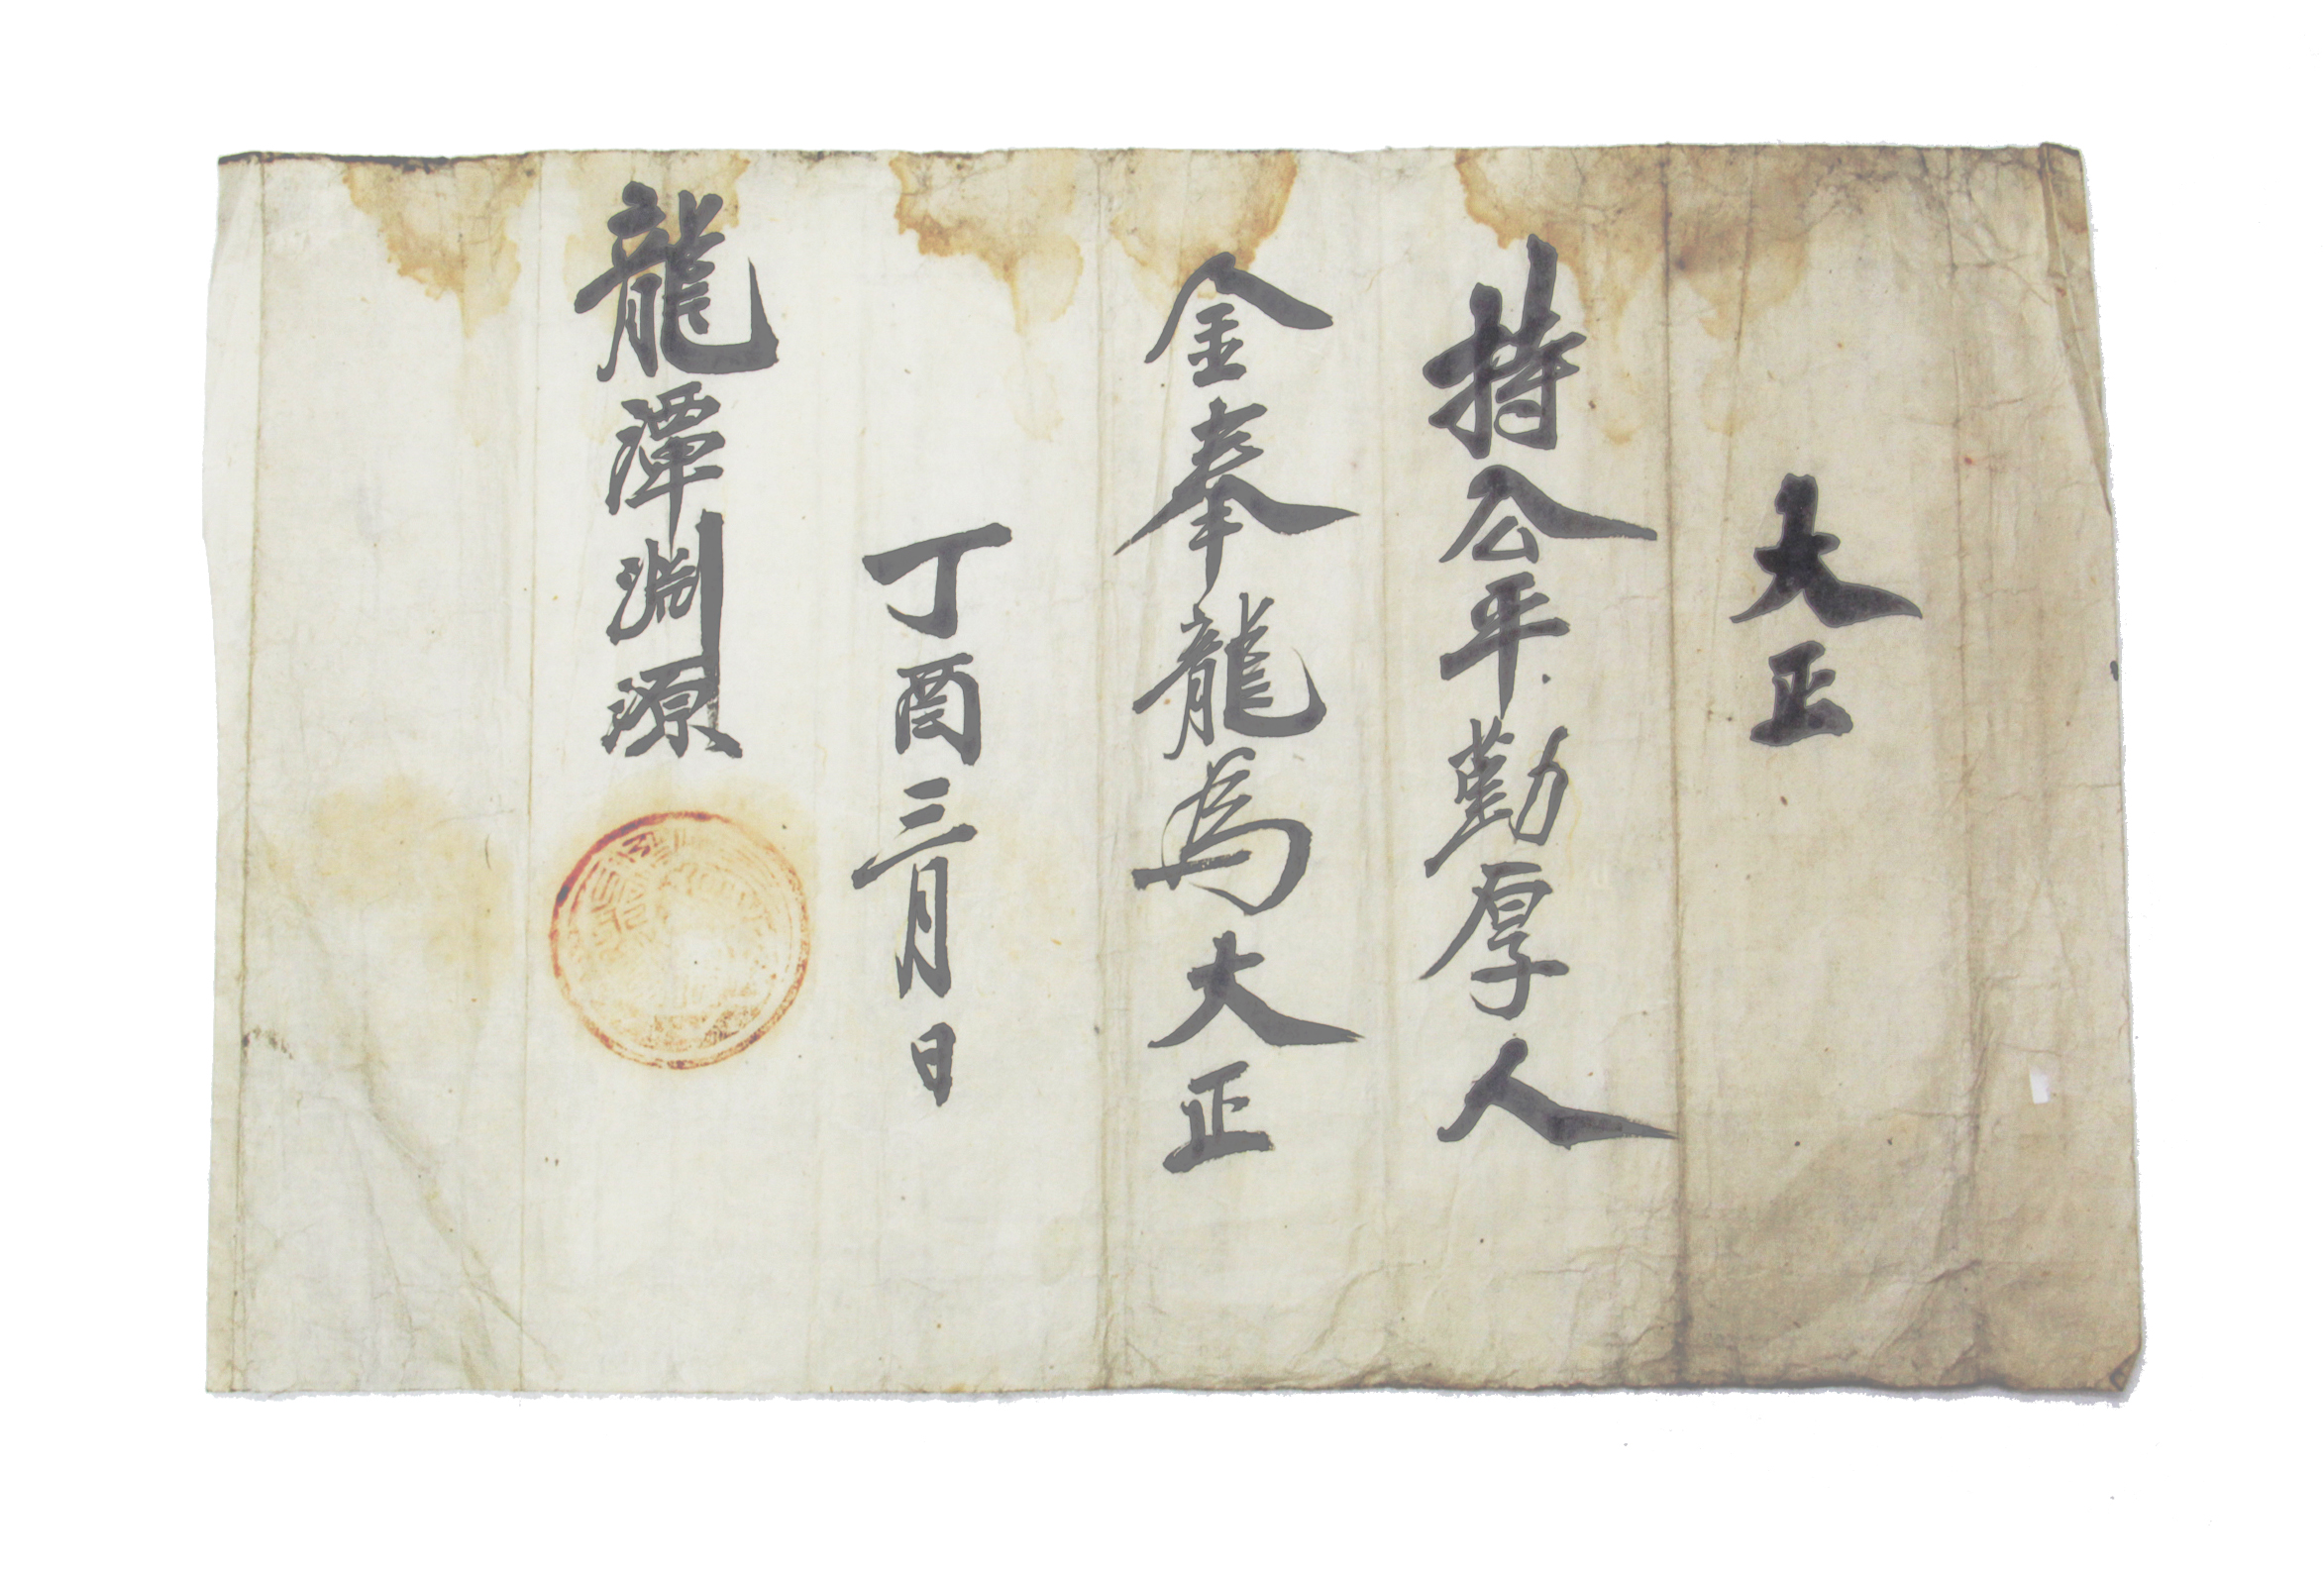 大正
持公平勤厚人
金奉龍為大正
丁酉三月日
龍潭淵源